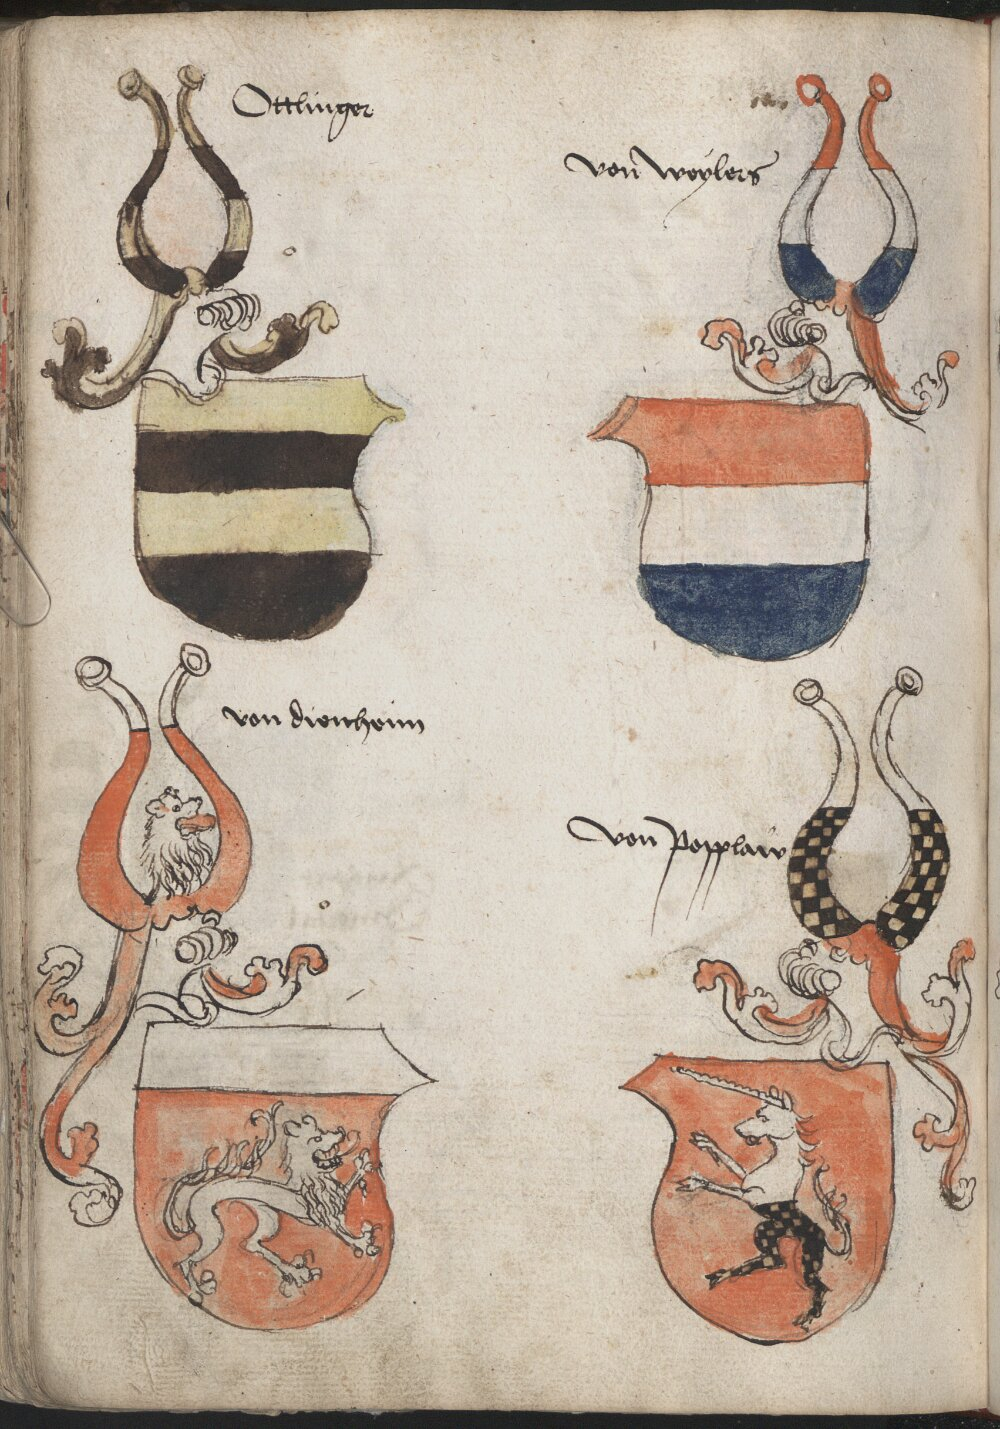 Ottlinger
von weylers
von dienheim
von Popplaw